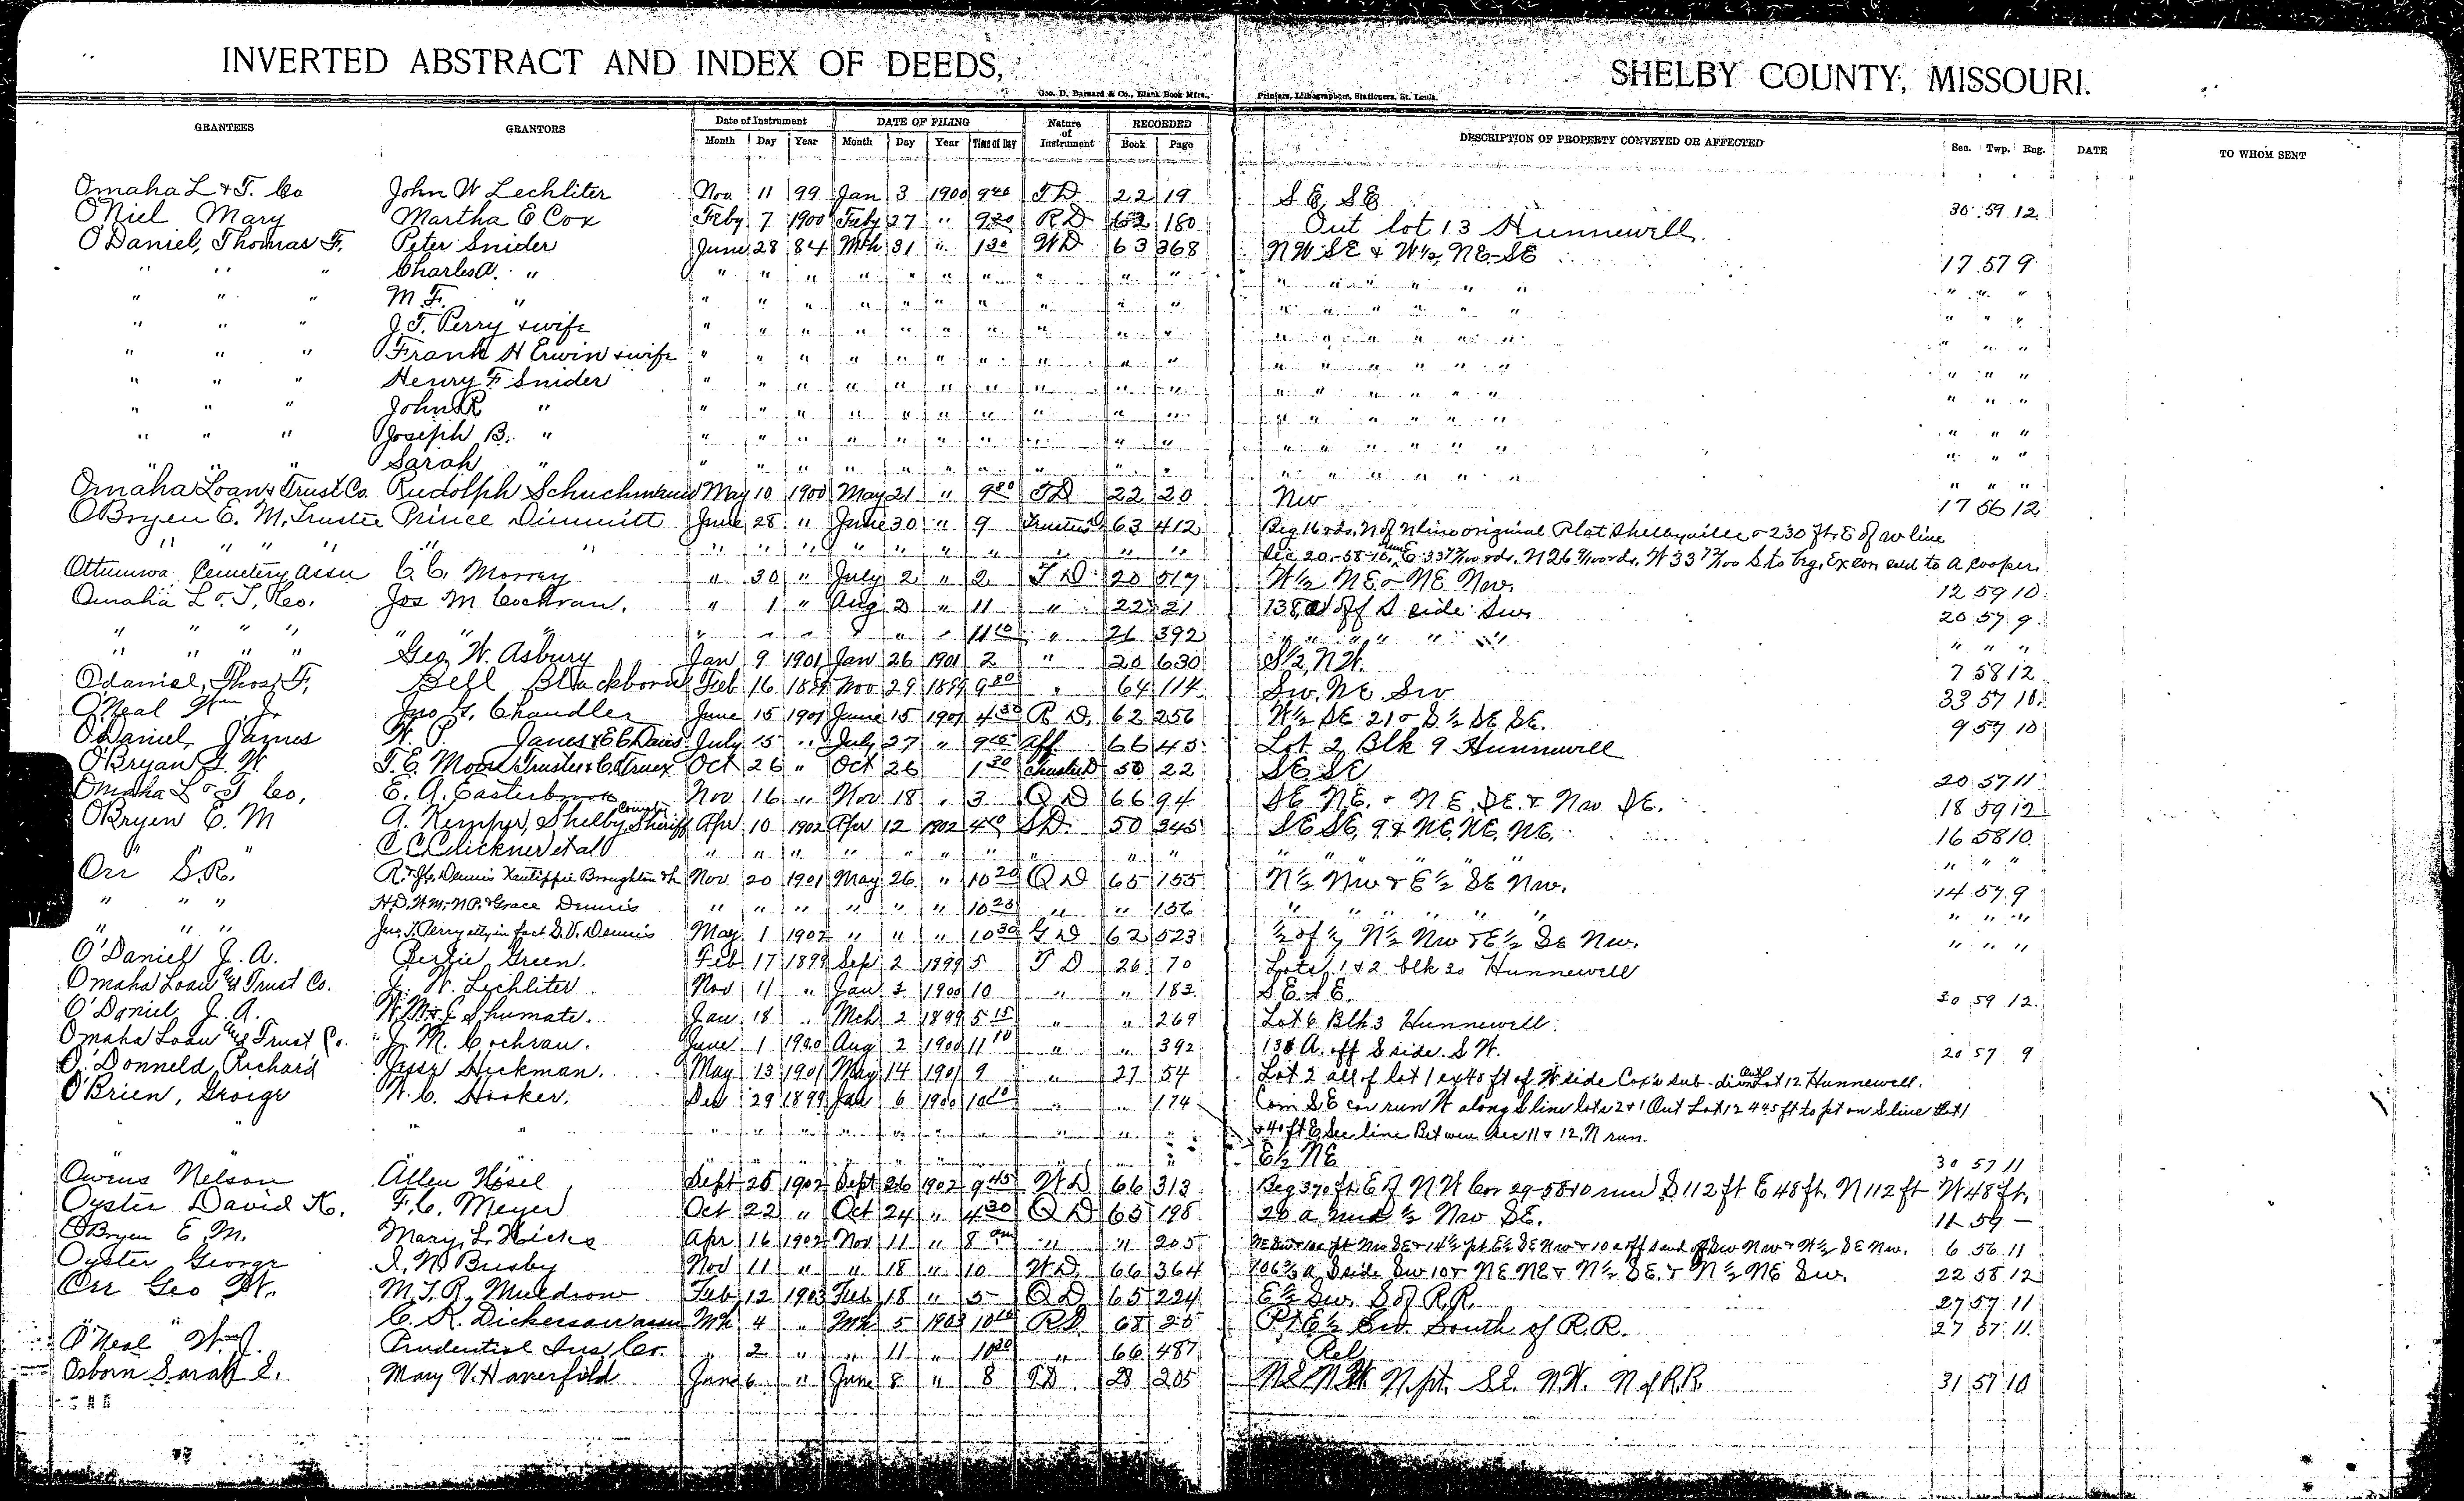 INVERTED ABSTRACT AND INDEX OF DEEDS, SHELBY COUNTY, MISSOURI.
Geo. D. Barnard & Co., Blank Book Mfrs., Printers, Lithographers, Stationers, St. Louis.
GRANTEES GRANTORS Date of Instrument DATE OF FILING Nature of Instrument RECORDED DESCRIPTION OF PROPERTY CONVEYED OR AFFECTED Sec. Twp. Rng. DATE TO WHOM SENT
Month Day Year Month Day Year Time of Day Book Page
Omaha L & T. Co John W Lechliter Nov. 11 99 Jan 3 1900 9 40 T D 22 19 S E, S E 30 59 12
O'Niel Mary Martha E Cox Feby 7 1900 Feby 27 " 9 20 R D 62 180 Out lot 13 Hunnewell
O'Daniel, Thomas F. Peter Snider June 28 84 Mch 31 " 1 30 W D 63 368 N W S E & W ½, N E - S E 17 57 9
" " " Charles A. " " " " " " " " " " " " " " " " " " " "
" " " M. F. " " " " " " " " " " " " " " " " " " " "
" " " J. T. Perry & wife " " " " " " " " " " " " " " " " " " "
" " " Frank H Erwin & wife " " " " " " " " " " " " " " " " " " "
" " " Henry F Snider " " " " " " " " " " " " " " " " " " "
" " " John R " " " " " " " " " " " " " " " " " " " "
" " " Joseph B. " " " " " " " " " " " " " " " " " " " "
" " " Sarah " " " " " " " " " " " " " " " " " " " "
Omaha Loan & Trust Co. Rudolph May 10 1900 May 21 " 9 T D 22 20 N w 17 56 12
O'Bryen E. M, Trustee Prince Dimmitt June 28 " June 30 " 9 Trustee D 63 412 Beg 16 rds. N of N line original Plat Shelbyville & 230 ft. E of w line
" " " " " " " " " " " " " " " Sec 20 - 58-10, E. 33 rds. N 26 rds, W 33 S to beg. Ex sold to A Cooper.
Ottumwa Cemetery Assn C. C. Morrey " 30 " July 2 " 2 T D 20 517 W ½ N E & N E Nw. 12 59 10
Omaha L & T. Co. Jos M Cochran. " 1 " Aug 2 " 11 " 22 21 138 a off S side Sw 20 57 9
" " " " " " " " " " " " 11 10 " 26 392 " " " " " " " " "
" " " " Geo W. Asbury Jan 9 1901 Jan 26 1901 2 " 20 630 S ½, N W. 7 58 12
Odaniel, Thos, F, Bell Blackborn Feb 16 Nov 29 1899 9 " 64 114 Sw, N E. Sw 33 57 10
O'Neal Wm Jr Jno H. Chandler June 15 1901 June 15 1901 4 30 R D 62 256 W ½ S E 21 & S ½ S E S E. 9 57 10
O'Daniel James W. P. Janes & E C Davis July 15 " July 27 " 9 Aff. 66 45 Lot 2 Blk 9 Hunnewell
O'Bryan J. W. T. E. Moore Trustee Oct 26 " Oct 26 1 30 Trustee D 50 22 S E, S E 20 57 11
Omaha L & T Co, E. A. Easterbrook Nov 16 " Nov 18 " 3 Q D 66 94 S E N E. & N E. S E. & Nw S E. 18 59 12
O'Bryen E. M A. Kemper, Shelby County Sheriff Apr 10 1902 Apr 12 1902 4 S D. 50 345 S E S E, 9 & N E, N E, N E, 16 58 10
C C Clickner et al " " " " " " " " " " " " " " " " "
Orr S. R. Dennis Xantippie Broughton Nov 20 1901 May 26 " 10 20 Q D 65 155 N ½ Nw & E ½ S E Nw. 14 57 9
" " " H. D. W M. N P. & Grace Dennis " " " " " " 10 25 " " 156 " " " " " " " " "
" " " Jno. T. Perry atty, in fact D. V. Dennis May 1 1902 " " " 10 30 G D 62 523 N ½ Nw & E ½ S E Nw. " " "
O'Daniel J. A. Green. Feb 17 1899 Sep 2 1899 5 T D 26 70 Lots 1 & 2 blk 20 Hunnewell
Omaha Loan and Trust Co. J. W. Lechliter Nov 11 " Jan 3 1900 10 " " 183 S. E. S E. 30 59 12
O'Daniel J. A. Shumate. Jan 18 " Mch 2 1899 5 15 " " 269 Lot 6 Blk 3 Hunnewell.
Omaha Loan and Trust Co. J. M. Cochran. June 1 1900 Aug 2 1900 11 10 " " 392 138 A. off S side. S W. 20 57 9
O'Donneld Richard Jesse Hickman. May 13 1901 May 14 1901 9 " 27 54 Lot 2 all of lot 1 ex 40 ft of W side Cox's sub-divn Out Lot 12 Hunnewell.
O'Brien, George W. C. Hooker. Dec 29 1899 Jan 6 1900 10 " " 174 Com S E cor run W along S line lots 2 & 1 Out Lot 12 445 ft to pt on S line Lot 1
" " " " " " " " " " " " & 40 ft E Sec line Between Sec 11 & 12, N run.
" " " " " " " " " " " " E ½ N E 30 57 11
Owens Nelson Allen Hosel Sept 26 1902 Sept 26 1902 9 45 W D 66 313 Beg 370 ft. E of N W Cor 29-58-10 run S 112 ft E 48 ft, N 112 ft W 48 ft,
Oyster David K. F. C. Meyer Oct 22 " Oct 24 " 4 30 Q D 65 198 20 a und ½ Nw S E. 11 59 —
O'Bryen E. M. Mary L Hicks Apr 16 1902 Nov 11 " 8 " " 205 6 56 11
Oyster George I. N. Busby Nov 11 " " 18 " 10 W D 66 364 S side Sw 10 & N E N E & N ½ S E. & N ½ N E Sw. 22 58 12
Orr Geo W. M. T. R. Muldrow Feb 12 1903 Feb 18 " 5 Q D 65 224 E ½ Sw. S of R. R. 27 57 11
" " C. R. Dickerson Mch 4 " Mch 5 1903 10 R D. 68 25 Pt E ½ Sw. South of R. R. 27 57 11
O'Neal W. J. Prudential Ins, Co. " 2 " " 11 " 10 " 66 487 Rel
Osborn Sarah E. Mary V. Haverfold June 6 " June 8 " 8 T D 28 205 N E N W N. pt. S E. N. W. N of R. R. 31 57 10